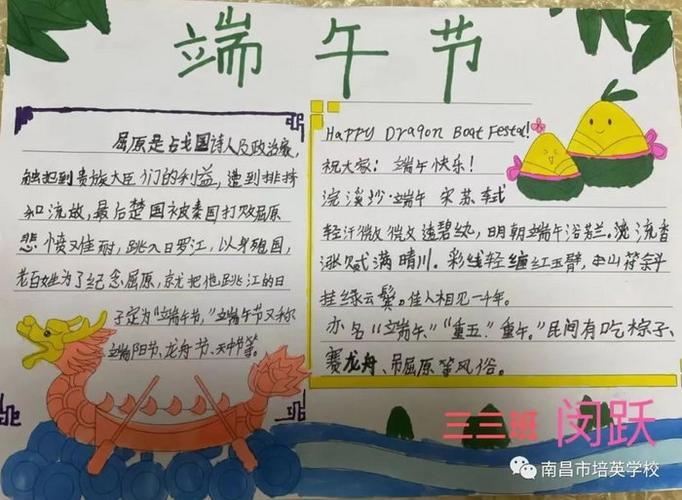 端午节
屈原是占戈国诗人及政治家,
触犯到贵族大臣们的利益,遭到排挤
和流放,最后楚国被秦国打败屈原
悲愤又难耐,跳入日罗江,以身殉国,
老百姓为了纪念屈原,就把他跳江的日
子定为“端午节,”端午节又称
端阳节、龙舟节、天中节等。
Happy Dragon Boat Festal!
祝大家:端午快乐!
浣溪沙·端午 宋苏轼
轻汗微微透碧纨,明朝端午浴芳兰。流香
涨腻满晴川。彩线轻缠红玉臂,小符斜
挂绿云鬓。佳人相见一千年。
亦名“端午、”“重五”重午。”民间有吃粽子、
赛龙舟、吊屈原等风俗。
三三班 闵跃
南昌市培英学校